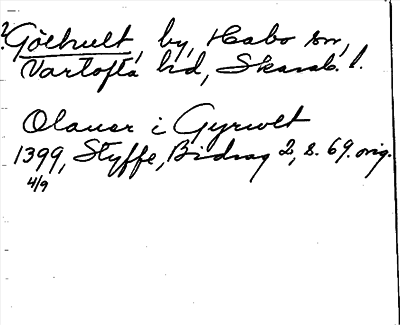 ? Gölhult, by, Habo sn,
Vartofta hd, Skarab. l.
Olauar i Gyrwlt
1399, Styffe, Bidrag 2, s. 69. orig.
4/9